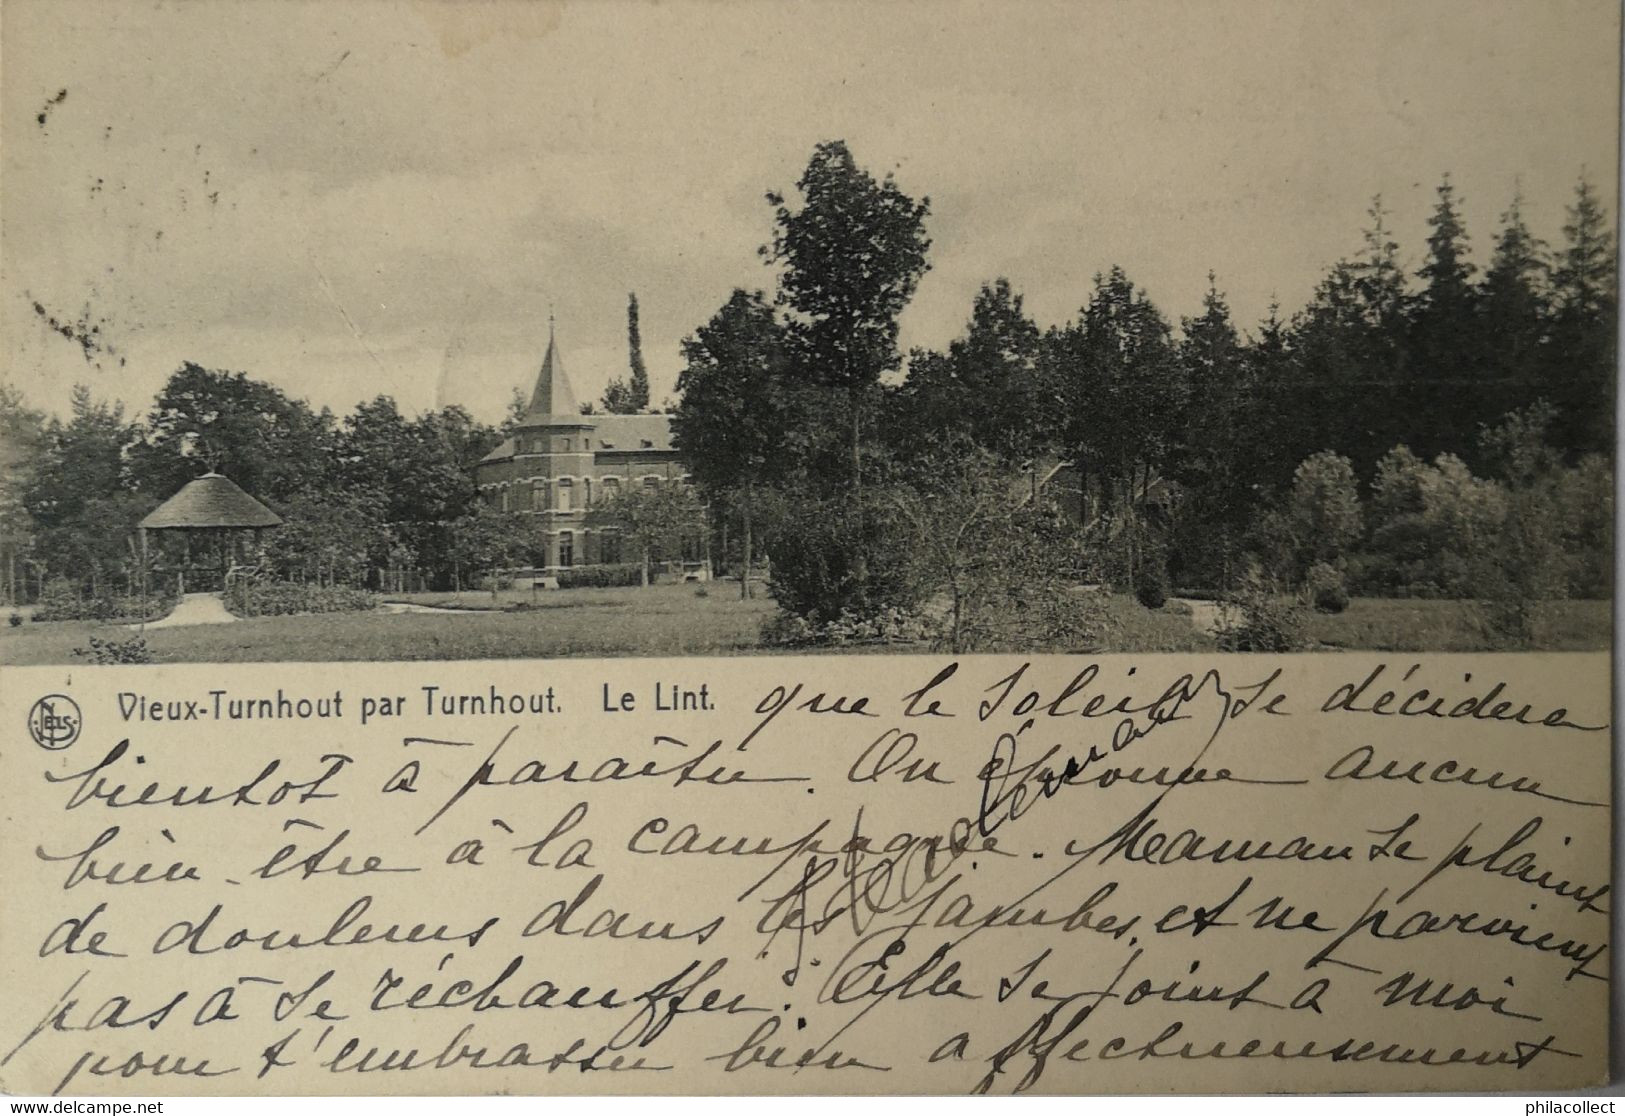 NELS
Vieux-Turnhout par Turnhout. Le Lint. que le soleil se décidera
bientôt à paraître. On éprouve aucun
bien-être à la campagne. Maman se plaint
de douleurs dans les jambes, et ne parvient
pas à se réchauffer. Elle se joint à moi
pour t'embrasser bien affectueusement
philacollect